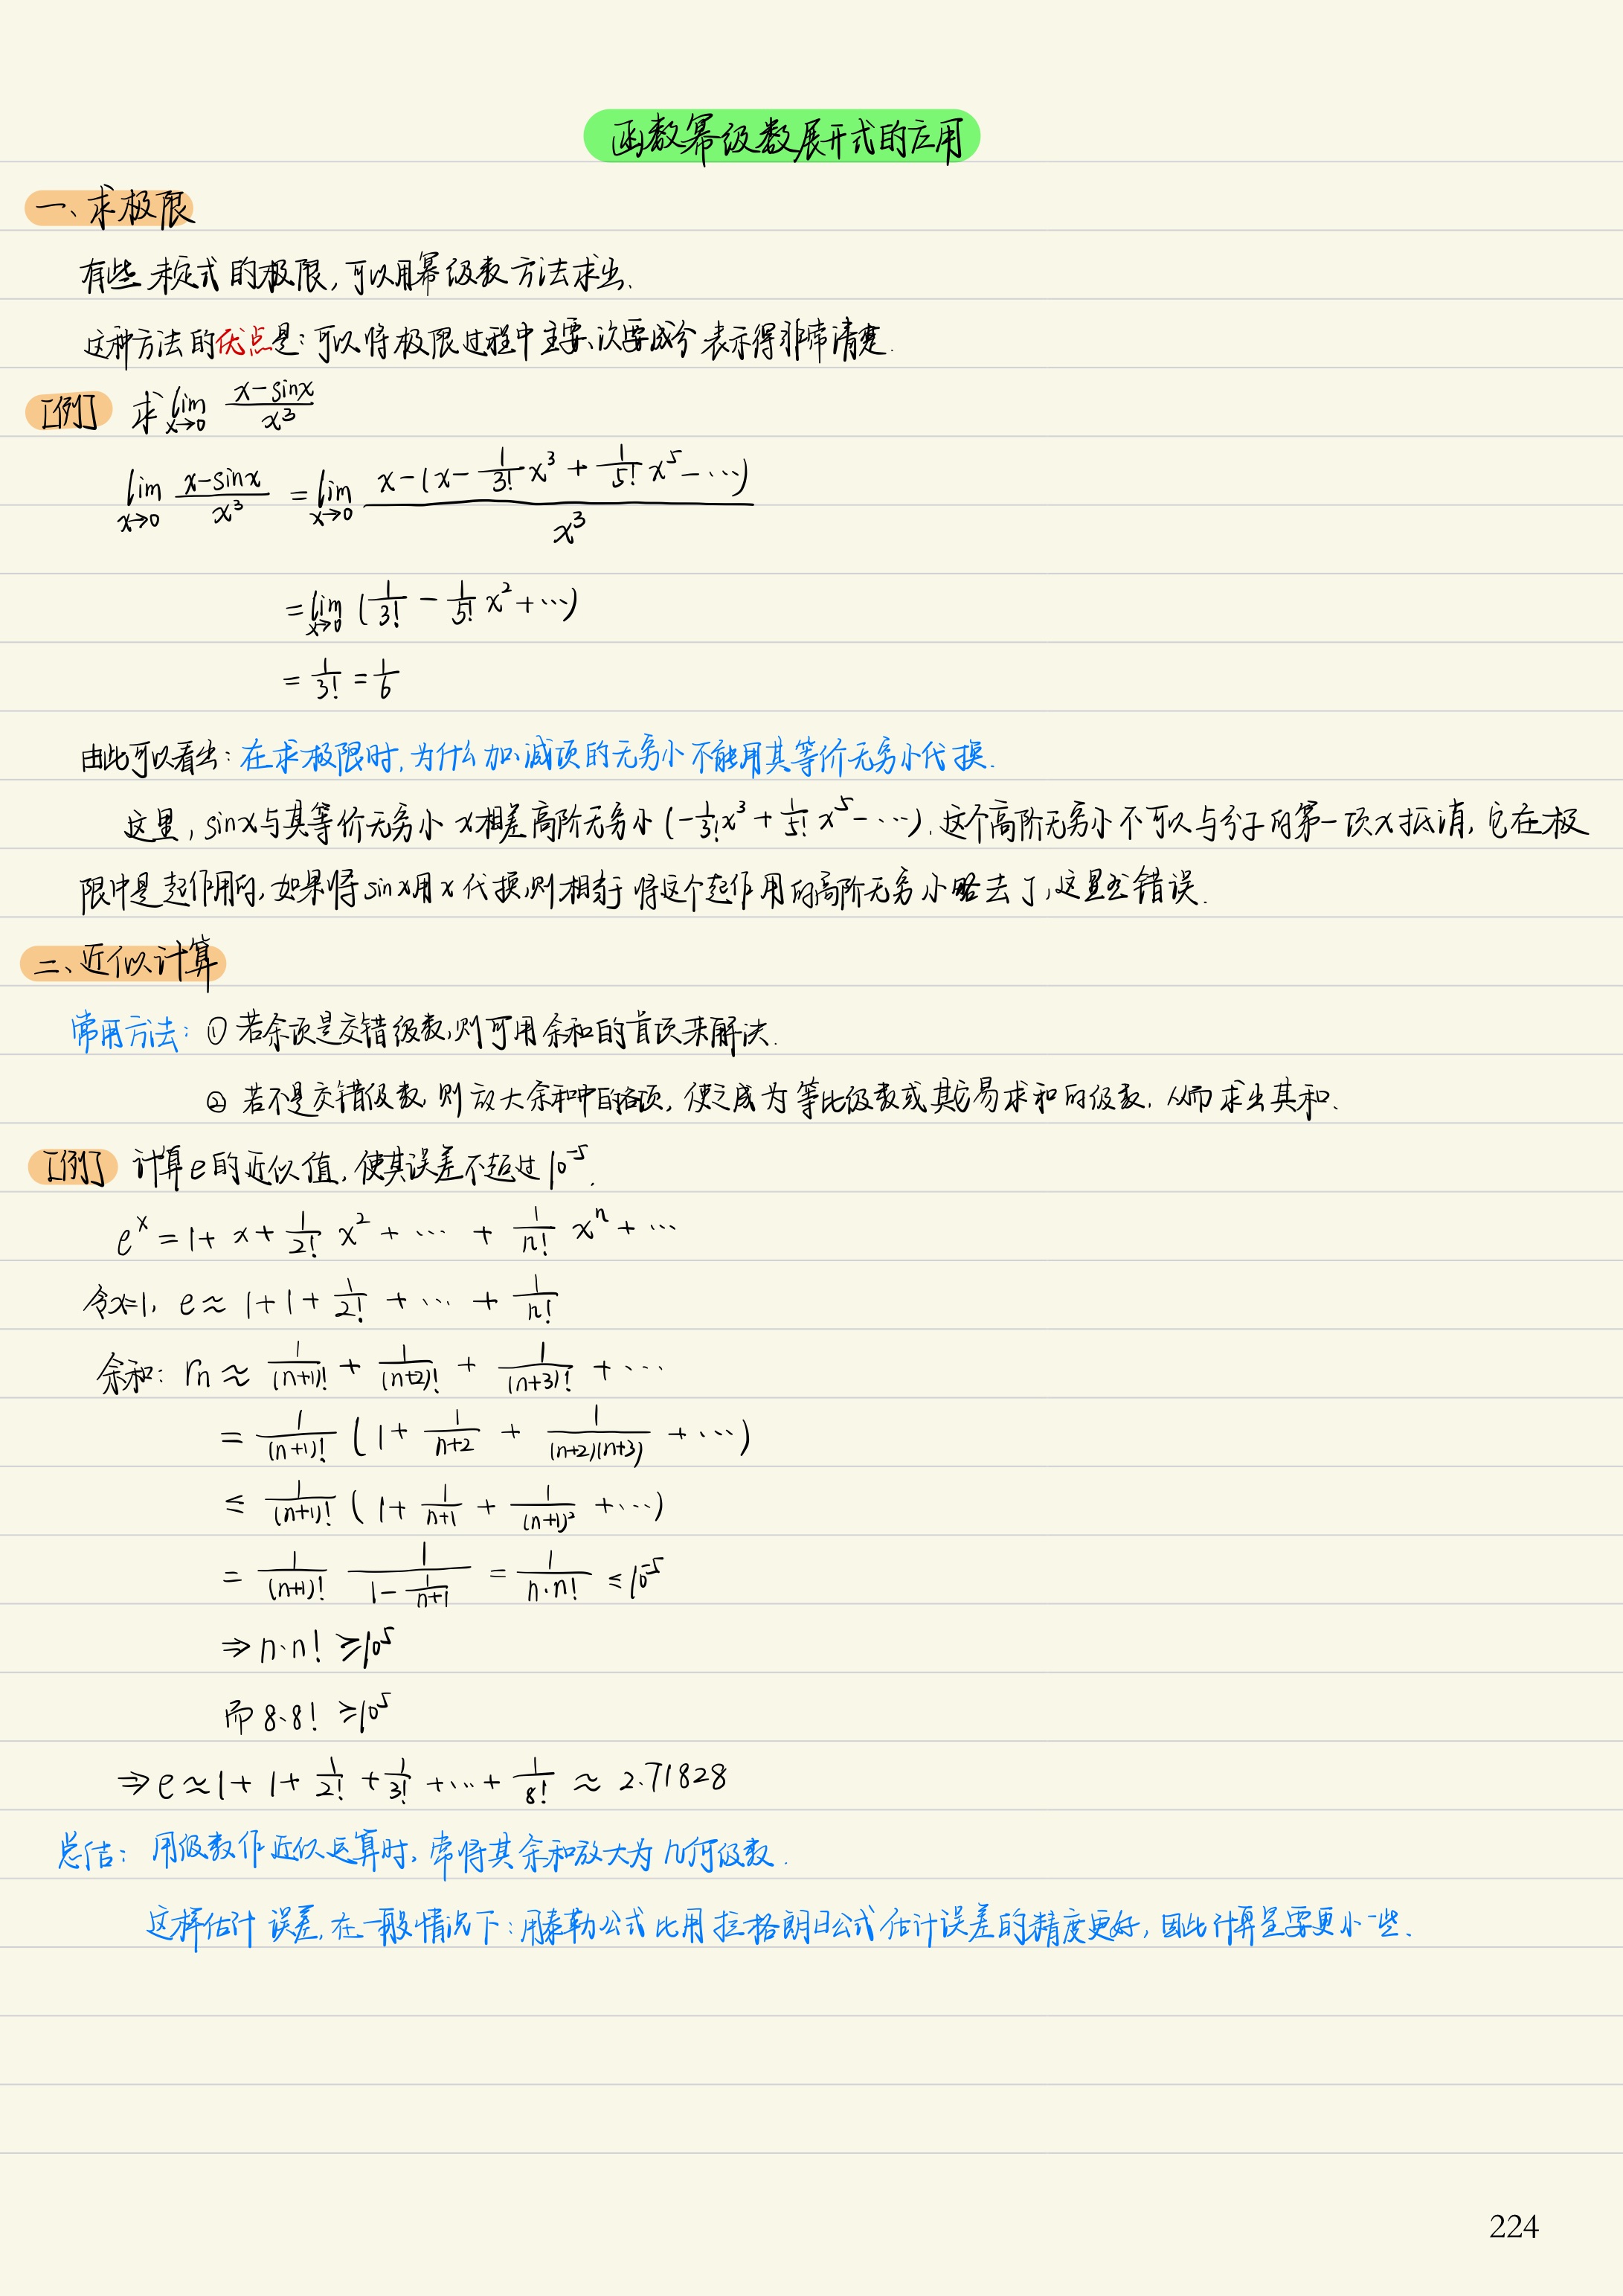 函数幂级数展开式的应用
一、求极限
有些未定式的极限,可以用幂级数方法求出.
这种方法的优点是:可以将极限过程中主要、次要成分表示得非常清楚.
[例] 求 lim_{x→0} (x-sinx)/x³
lim_{x→0} (x-sinx)/x³ = lim_{x→0} (x-(x-1/3! x³+1/5! x⁵-…))/x³
= lim_{x→0} (1/3! - 1/5! x²+…)
= 1/3! = 1/6
由此可以看出:在求极限时,为什么加、减项的无穷小不能用其等价无穷小代换.
这里,sinx与其等价无穷小x相差高阶无穷小(-1/3! x³+1/5! x⁵-…).这个高阶无穷小不可以与分子的第一项x抵消,它在极
限中是起作用的,如果将sinx用x代换,则相当于将这个起作用的高阶无穷小略去了,这显然错误.
二、近似计算
常用方法: ① 若余项是交错级数,则可用余和的首项来解决.
② 若不是交错级数,则放大余和中的各项,使之成为等比级数或其它易求和的级数,从而求出其和.
[例] 计算e的近似值,使其误差不超过10⁻⁵.
eˣ = 1+x+1/2! x²+…+1/n! xⁿ+…
令x=1, e≈1+1+1/2!+…+1/n!
余和: rn ≈ 1/(n+1)! + 1/(n+2)! + 1/(n+3)! + …
= 1/(n+1)! (1+1/(n+2)+1/((n+2)(n+3))+…)
≤ 1/(n+1)! (1+1/(n+1)+1/(n+1)²+…)
= 1/(n+1)! 1/(1-1/(n+1)) = 1/(n·n!) ≤10⁻⁵
⇒n·n! ≥10⁵
而 8·8! ≥10⁵
⇒e≈1+1+1/2!+1/3!+…+1/8! ≈ 2.71828
总结: 用级数作近似运算时,常将其余和放大为几何级数.
这样估计误差,在一般情况下:用泰勒公式比用拉格朗日公式估计误差的精度更好,因此计算量要更小一些.
224